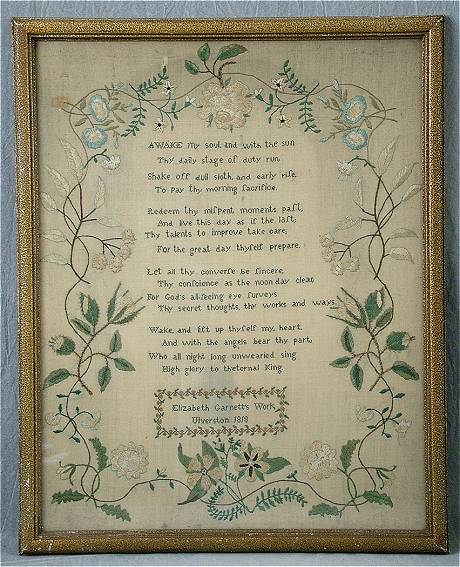 AWAKE my soul and with the sun
Thy daily stage of duty run.
Shake off dull sloth, and early rise,
To Pay thy morning sacrifice.
Redeem thy mispent moments past,
And live this day as if the last,
Thy talents to improve take care,
For the great day thyself prepare.
Let all thy converse be sincere
Thy conscience as the noon day clear,
For God's all-seeing eye surveys
Thy secret thoughts, thy works and ways.
Wake, and lift up thyself my heart,
And with the angels bear thy part,
Who all night long unwearied sing
High glory to theternal King.
Elizabeth Garnett's Work
Ulverston 1818